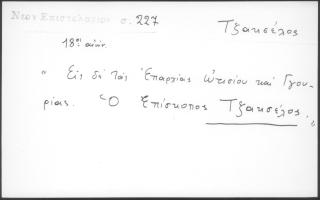 Νεον Επιστολάριον σ. 227
Τζακσέλος
18ος αιών.
" Εἰς δὲ τὰς Ἐπαρχίας Ὠτισίου καὶ Γγου-
ρίας. Ὁ Ἐπίσκοπος Τζακσέλος. "